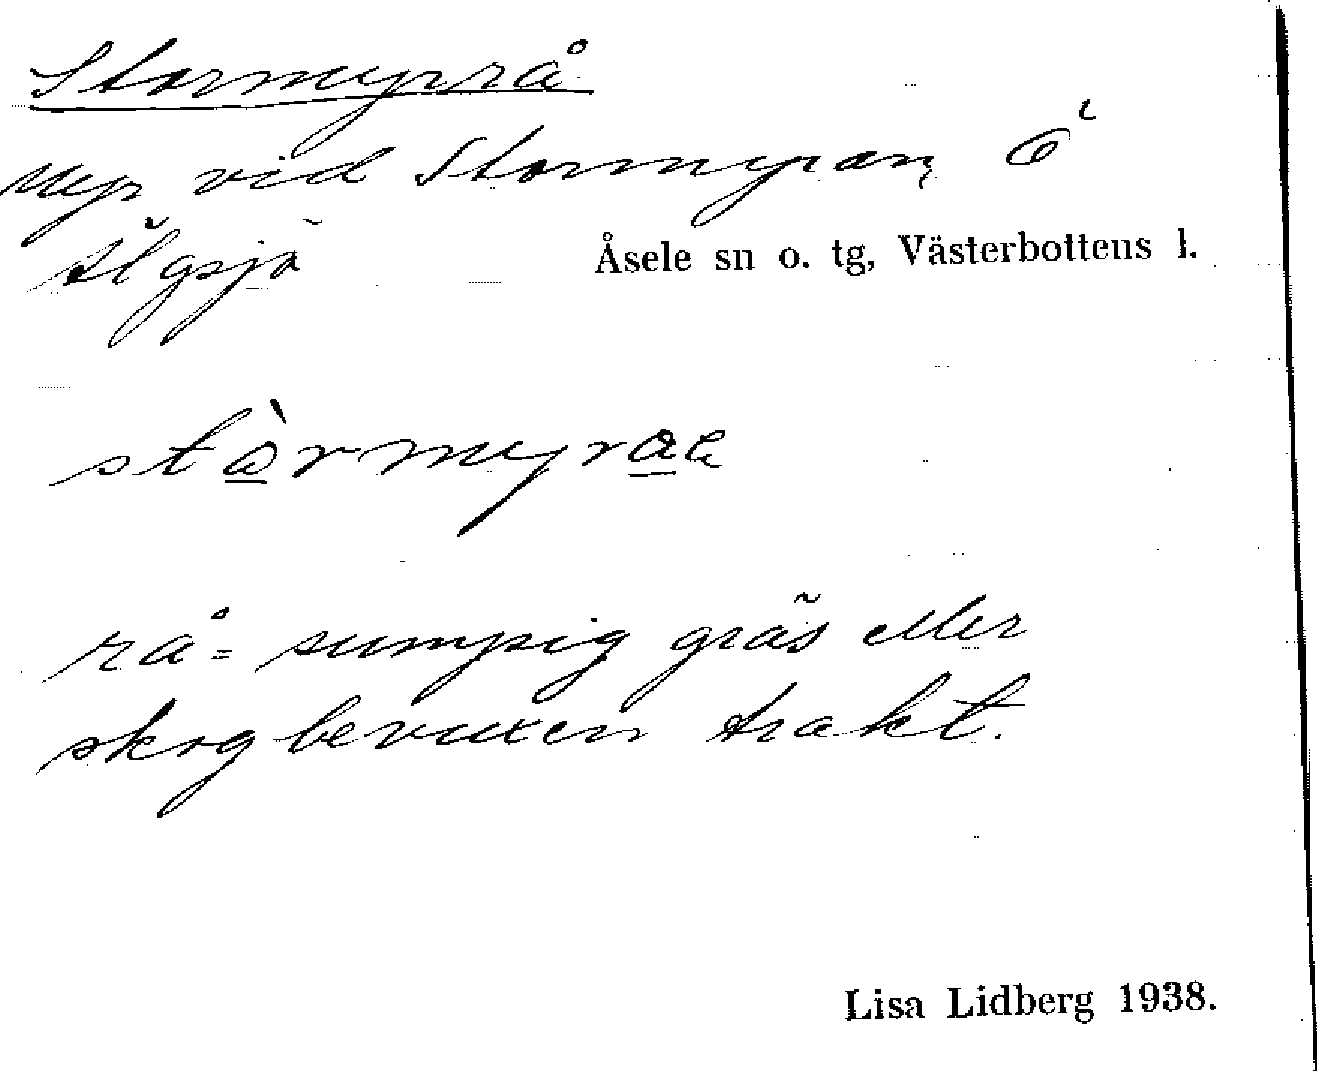 Stormyrrå
Myr vid Stormyran, Ö
Älgsjö
Åsele sn o. tg, Västerbottens l.
rå = sumpig gräs eller
skogbevuxen trakt.
Lisa Lidberg 1938.